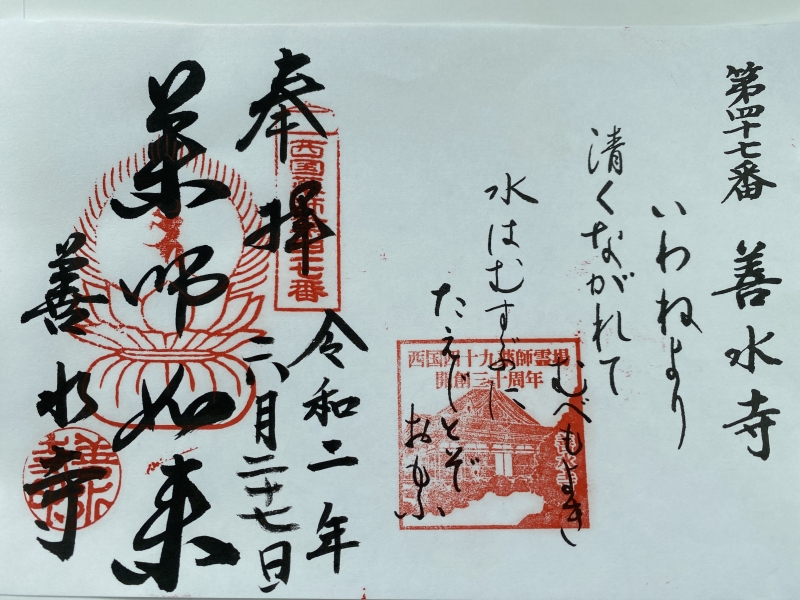 第四十七番 善水寺
いわねより
清くながれて
水はむすぶに
たえじとぞ
おもふ
むべもよきし
奉拝
西国薬師第四十七番
令和二年
六月二十七日
薬師如来
善水寺
西国四十九薬師霊場
開創三十周年
善水寺